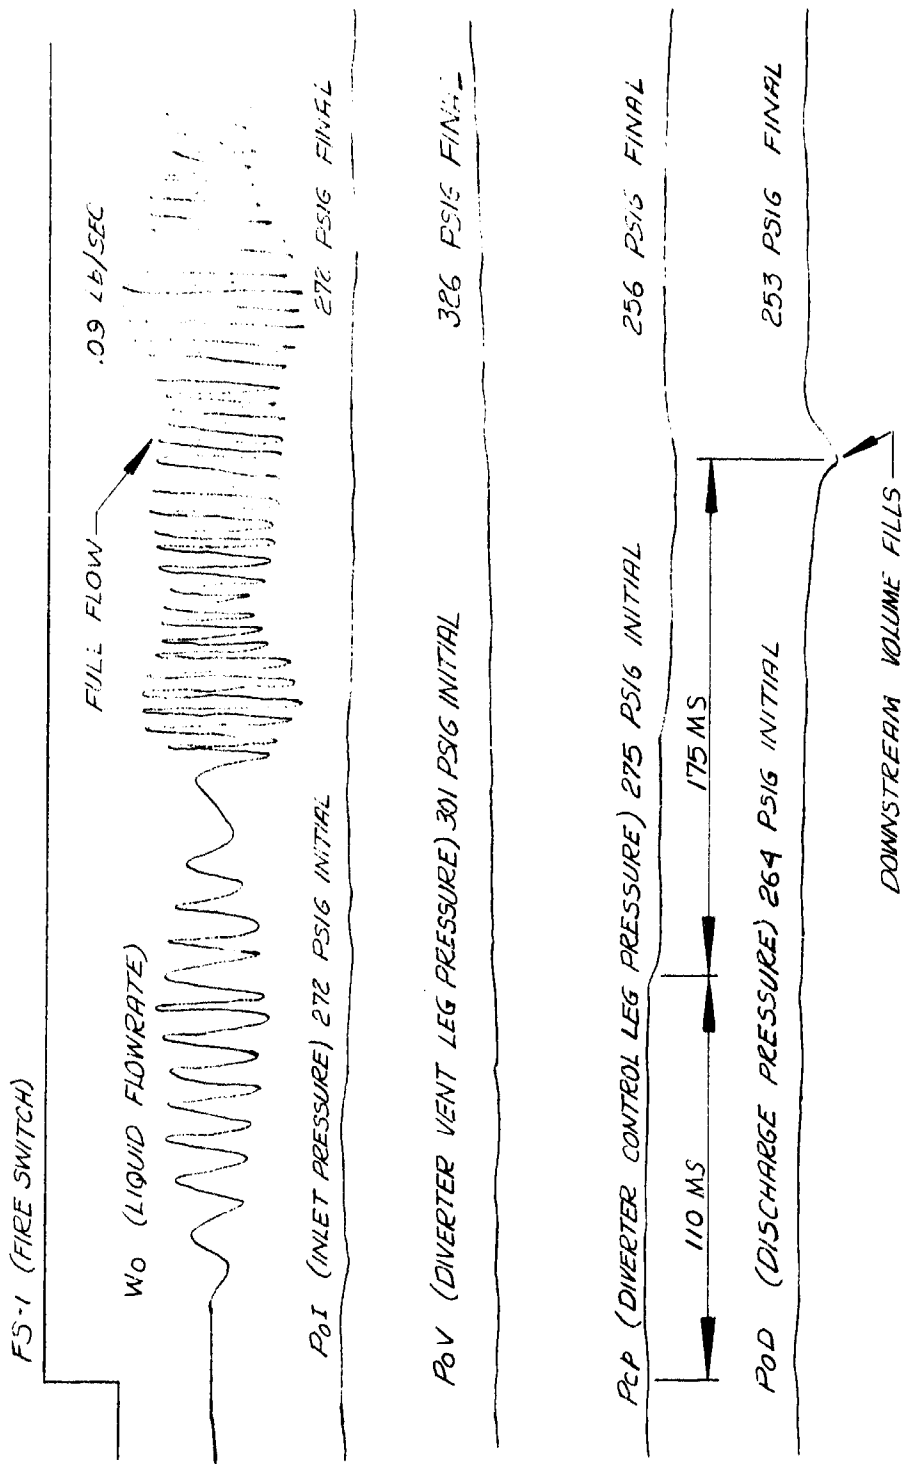 FS-1 (FIRE SWITCH)
Wo (LIQUID FLOWRATE)
FULL FLOW
.09 Lb/SEC
PoI (INLET PRESSURE) 272 PSIG INITIAL
272 PSIG FINAL
PoV (DIVERTER VENT LEG PRESSURE) 301 PSIG INITIAL
326 PSIG FINAL
PcP (DIVERTER CONTROL LEG PRESSURE) 275 PSIG INITIAL
256 PSIG FINAL
110 MS
175 MS
PoD (DISCHARGE PRESSURE) 264 PSIG INITIAL
253 PSIG FINAL
DOWNSTREAM VOLUME FILLS